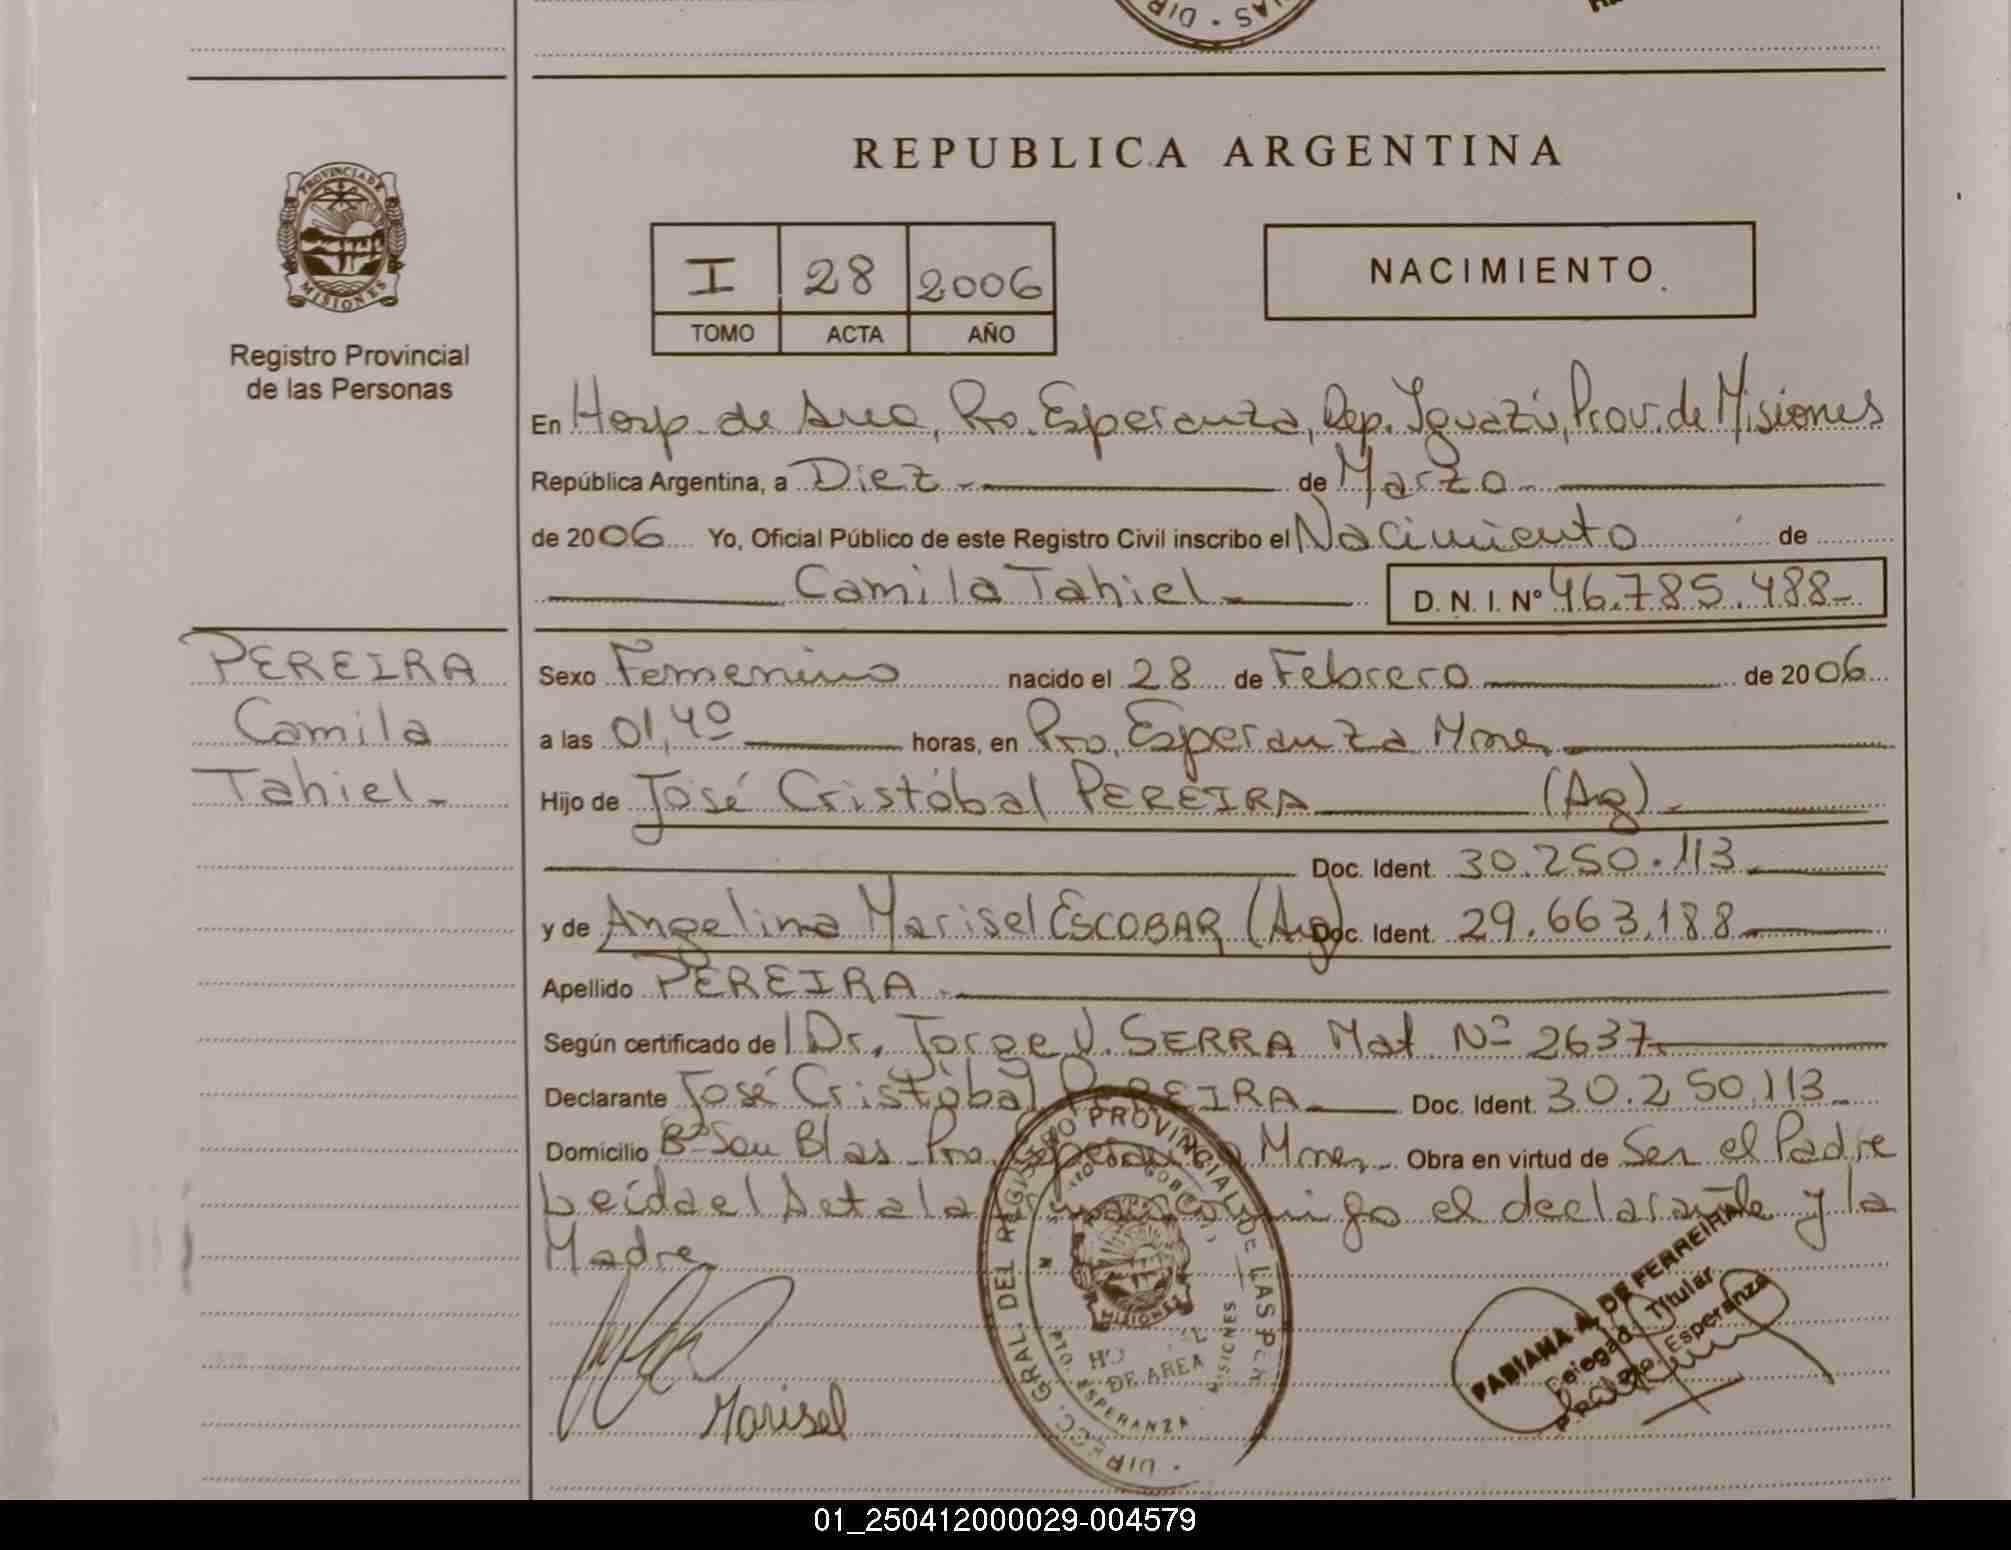 REPUBLICA ARGENTINA
PROVINCIA DE
MISIONES
Registro Provincial
de las Personas
I 28 2006
TOMO ACTA AÑO
NACIMIENTO
En Hosp. de Area, Pto. Esperanza, Dep. Iguazú, Prov. de Misiones
República Argentina, a Diez de Marzo
de 2006 Yo, Oficial Público de este Registro Civil inscribo el Nacimiento de
Camila Tahiel D. N. I. Nº 46.785.488
PEREIRA
Camila
Tahiel
Sexo Femenino nacido el 28 de Febrero de 2006
a las 01,40 horas, en Pto. Esperanza Mnes
Hijo de José Cristóbal PEREIRA (Ag)
Doc. Ident. 30.250.113
y de Angelina Marisel ESCOBAR (Ag) Doc. Ident. 29.663.188
Apellido PEREIRA
Según certificado de Dr. Jorge J. SERRA Mat Nº 2637
Declarante José Cristóbal PEREIRA Doc. Ident. 30.250.113
Domicilio Bº San Blas Pto. Esperanza Mnes. Obra en virtud de Ser el Padre
Leída el Acta la firman conmigo el declarante y la
Madre
Marisel
DIRECC. GRAL. DEL REGISTRO PROVINCIAL DE LAS PER
MISIONES
DE AREA
PTO. ESPERANZA - MISIONES
FABIANA A. DE FERREIRA
Delegada Titular
Pto. Esperanza
01_250412000029-004579